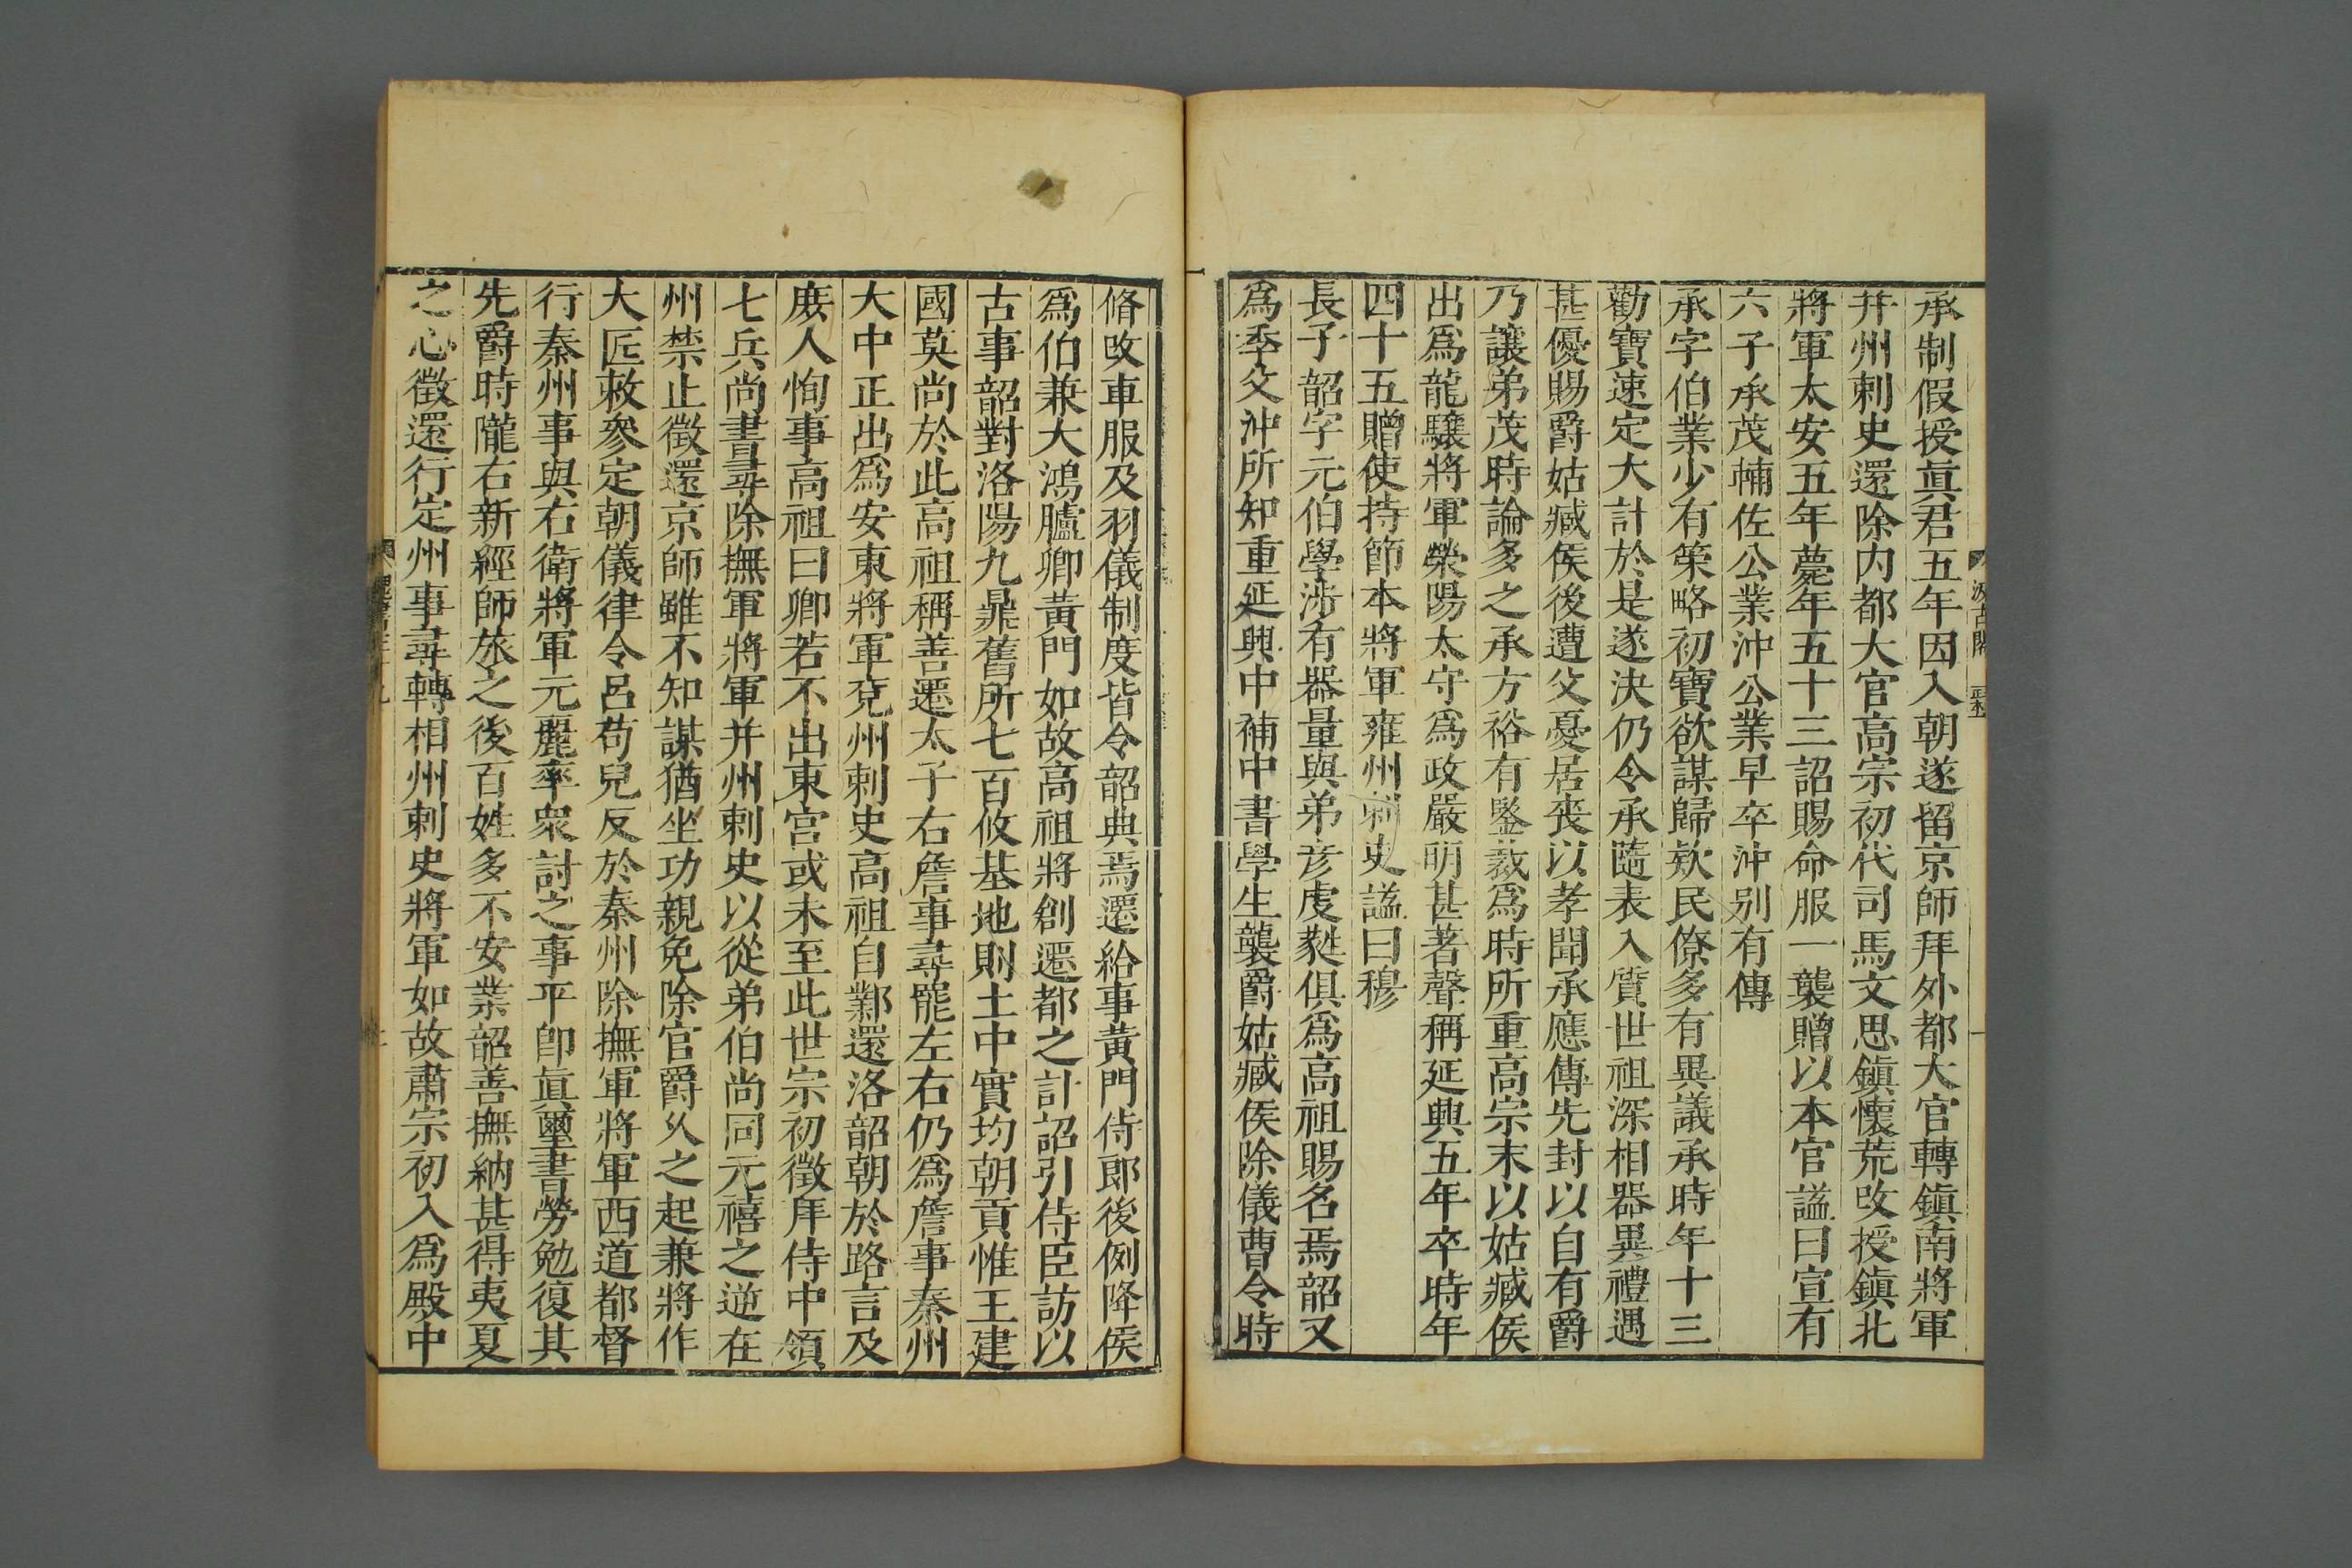 承制假授眞君五年因入朝遂留京師拜外都大官轉鎮南將軍
并州刺史還除内都大官高宗初代司馬文思鎮懷荒改授鎮北
將軍太安五年薨年五十三詔賜命服一襲贈以本官謚曰宣有
六子承茂輔佐公業沖公業早卒沖别有傳
承字伯業少有策略初寶欲謀歸欵民僚多有異議承時年十三
勸寶速定大計於是遂決仍令承隨表入質世祖深相器異禮遇
甚優賜爵姑臧侯後遭父憂居喪以孝聞承應傳先封以自有爵
乃讓弟茂時論多之承方裕有鑒裁爲時所重高宗末以姑臧侯
出爲龍驤將軍滎陽太守爲政嚴明甚著聲稱延興五年卒時年
四十五贈使持節本將軍雍州刺史謚曰穆
長子韶字元伯學涉有器量與弟彦虔蕤俱爲高祖賜名焉韶又
爲季父沖所知重延興中補中書學生襲爵姑臧侯除儀曹令時
脩改車服及羽儀制度皆令韶典焉遷給事黃門侍郎後例降侯
爲伯兼大鴻臚卿黃門如故高祖將創遷都之計詔引侍臣訪以
古事韶對洛陽九鼎舊所七百攸基地則土中實均朝貢惟王建
國莫尚於此高祖稱善遷太子右詹事尋罷左右仍爲詹事秦州
大中正出爲安東將軍兗州刺史高祖自鄴還洛韶朝於路言及
庶人恂事高祖曰卿若不出東宮或未至此世宗初徵拜侍中領
七兵尚書尋除撫軍將軍并州刺史以從弟伯尚同元禧之逆在
州禁止徵還京師雖不知謀猶坐功親免除官爵乆之起兼將作
大匠敕參定朝儀律令呂苟兒反於秦州除撫軍將軍西道都督
行秦州事與右衛將軍元麗率衆討之事平卽眞璽書勞勉復其
先爵時隴右新經師旅之後百姓多不安業韶善撫納甚得夷夏
之心徵還行定州事尋轉相州刺史將軍如故肅宗初入爲殿中